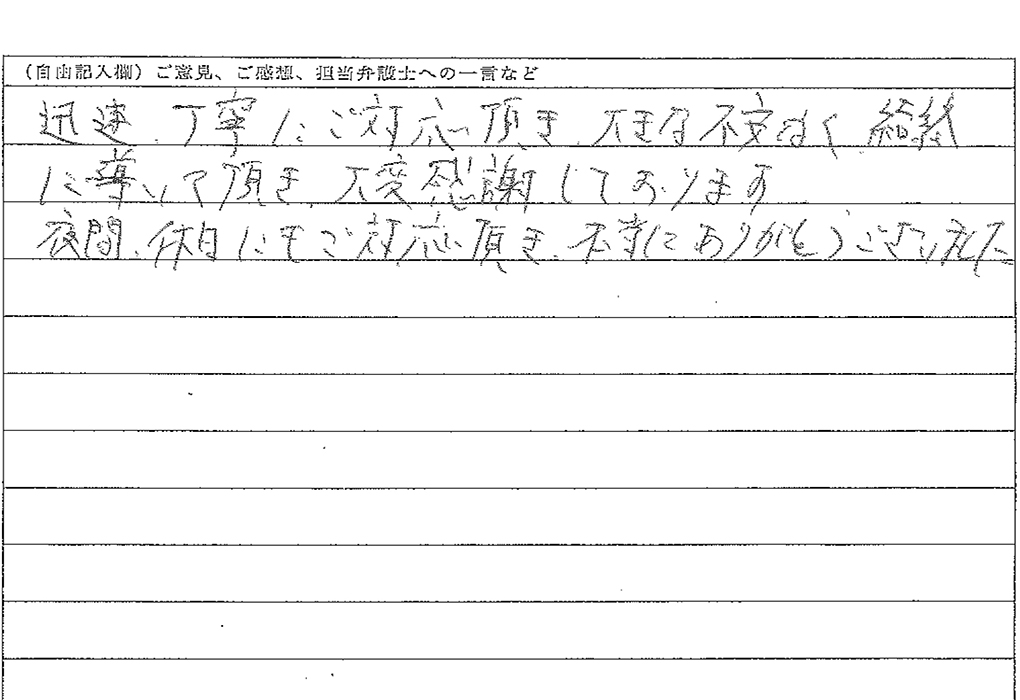 （自由記入欄）ご意見、ご感想、担当弁護士への一言など
迅速、丁寧にご対応頂き、大きな不安なく
に導いて頂き、大変感謝しております
夜間、休日にもご対応頂き、本当にありがとうございました